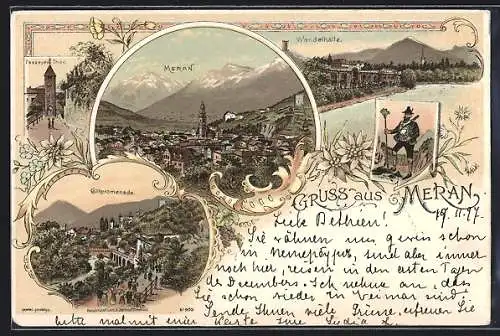 Passeyrer Thor.
MERAN
Wandelhalle.
Gilfpromenade.
GRUSS AUS MERAN.
19. II. 97.
Sie wähnen uns gewiss schon
in und sind aber immer
noch hier, reisen in den ersten Tagen
des Decembers. Ich nehme an, dass
Sie schon wieder in Weimar sind
Sende Ihnen viele Grüsse, erfreuen Sie
bitte mal mit einer Karte Ihre